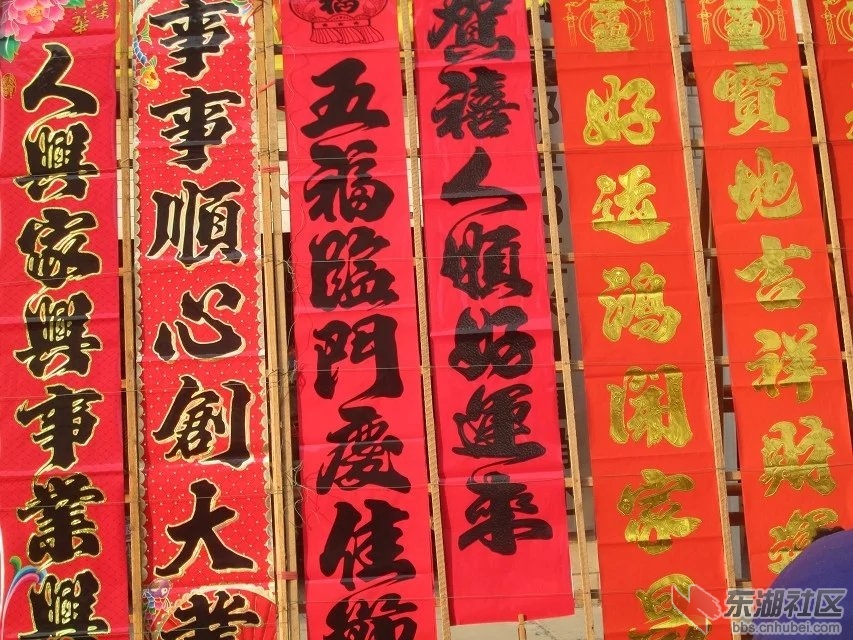 人興家興事業興
事事順心創大業
福
五福臨門慶佳節
禧人順好運來
福
好运鴻開家昌
福
寶地吉祥財源
东湖社区
bbs.cnhubei.com